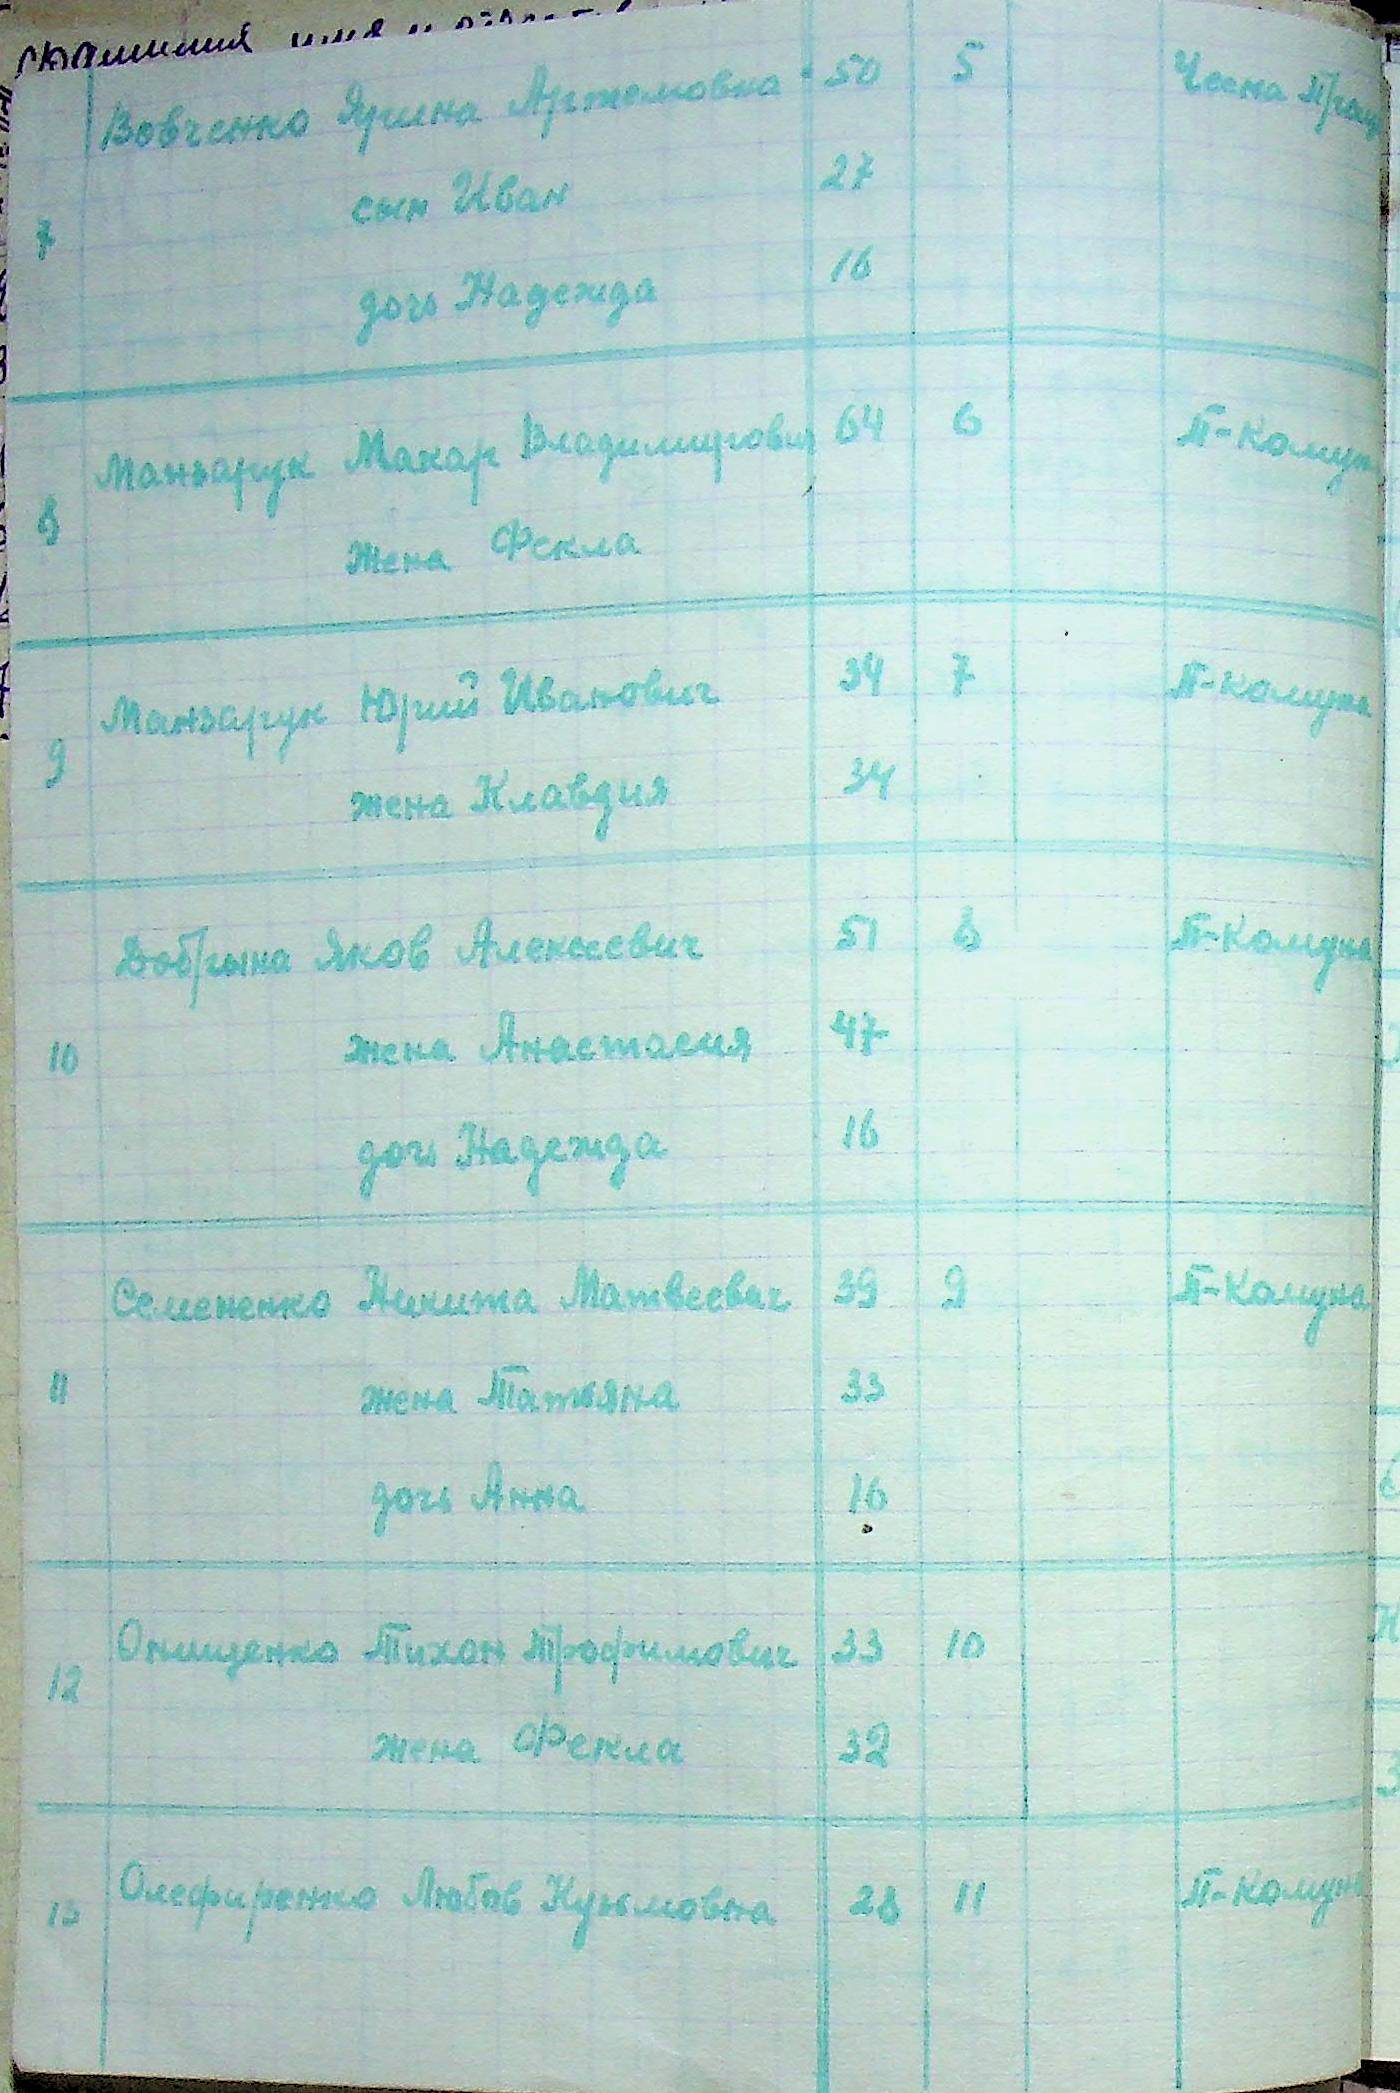 Фамилия имя и отчеств
7 Вовченко Ярина Артемовна 50 5 Чесна Прац
сын Иван 27
дочь Надежда 16
8 Манзарук Макар Владимирович 64 6 П-Комун
жена Фекла
9 Манзарук Юрий Иванович 34 7 П-комуна
жена Клавдия 34
10 Добрына Яков Алексеевич 51 8 П-Комуна
жена Анастасия 47
дочь Надежда 16
11 Семененко Никита Матвеевич 39 9 П-Комуна
жена Татьяна 33
дочь Анна 16
12 Онищенко Тихон Трофимович 33 10
жена Фекла 32
13 Олефиренко Любов Кузьмовна 28 11 П-Комуна